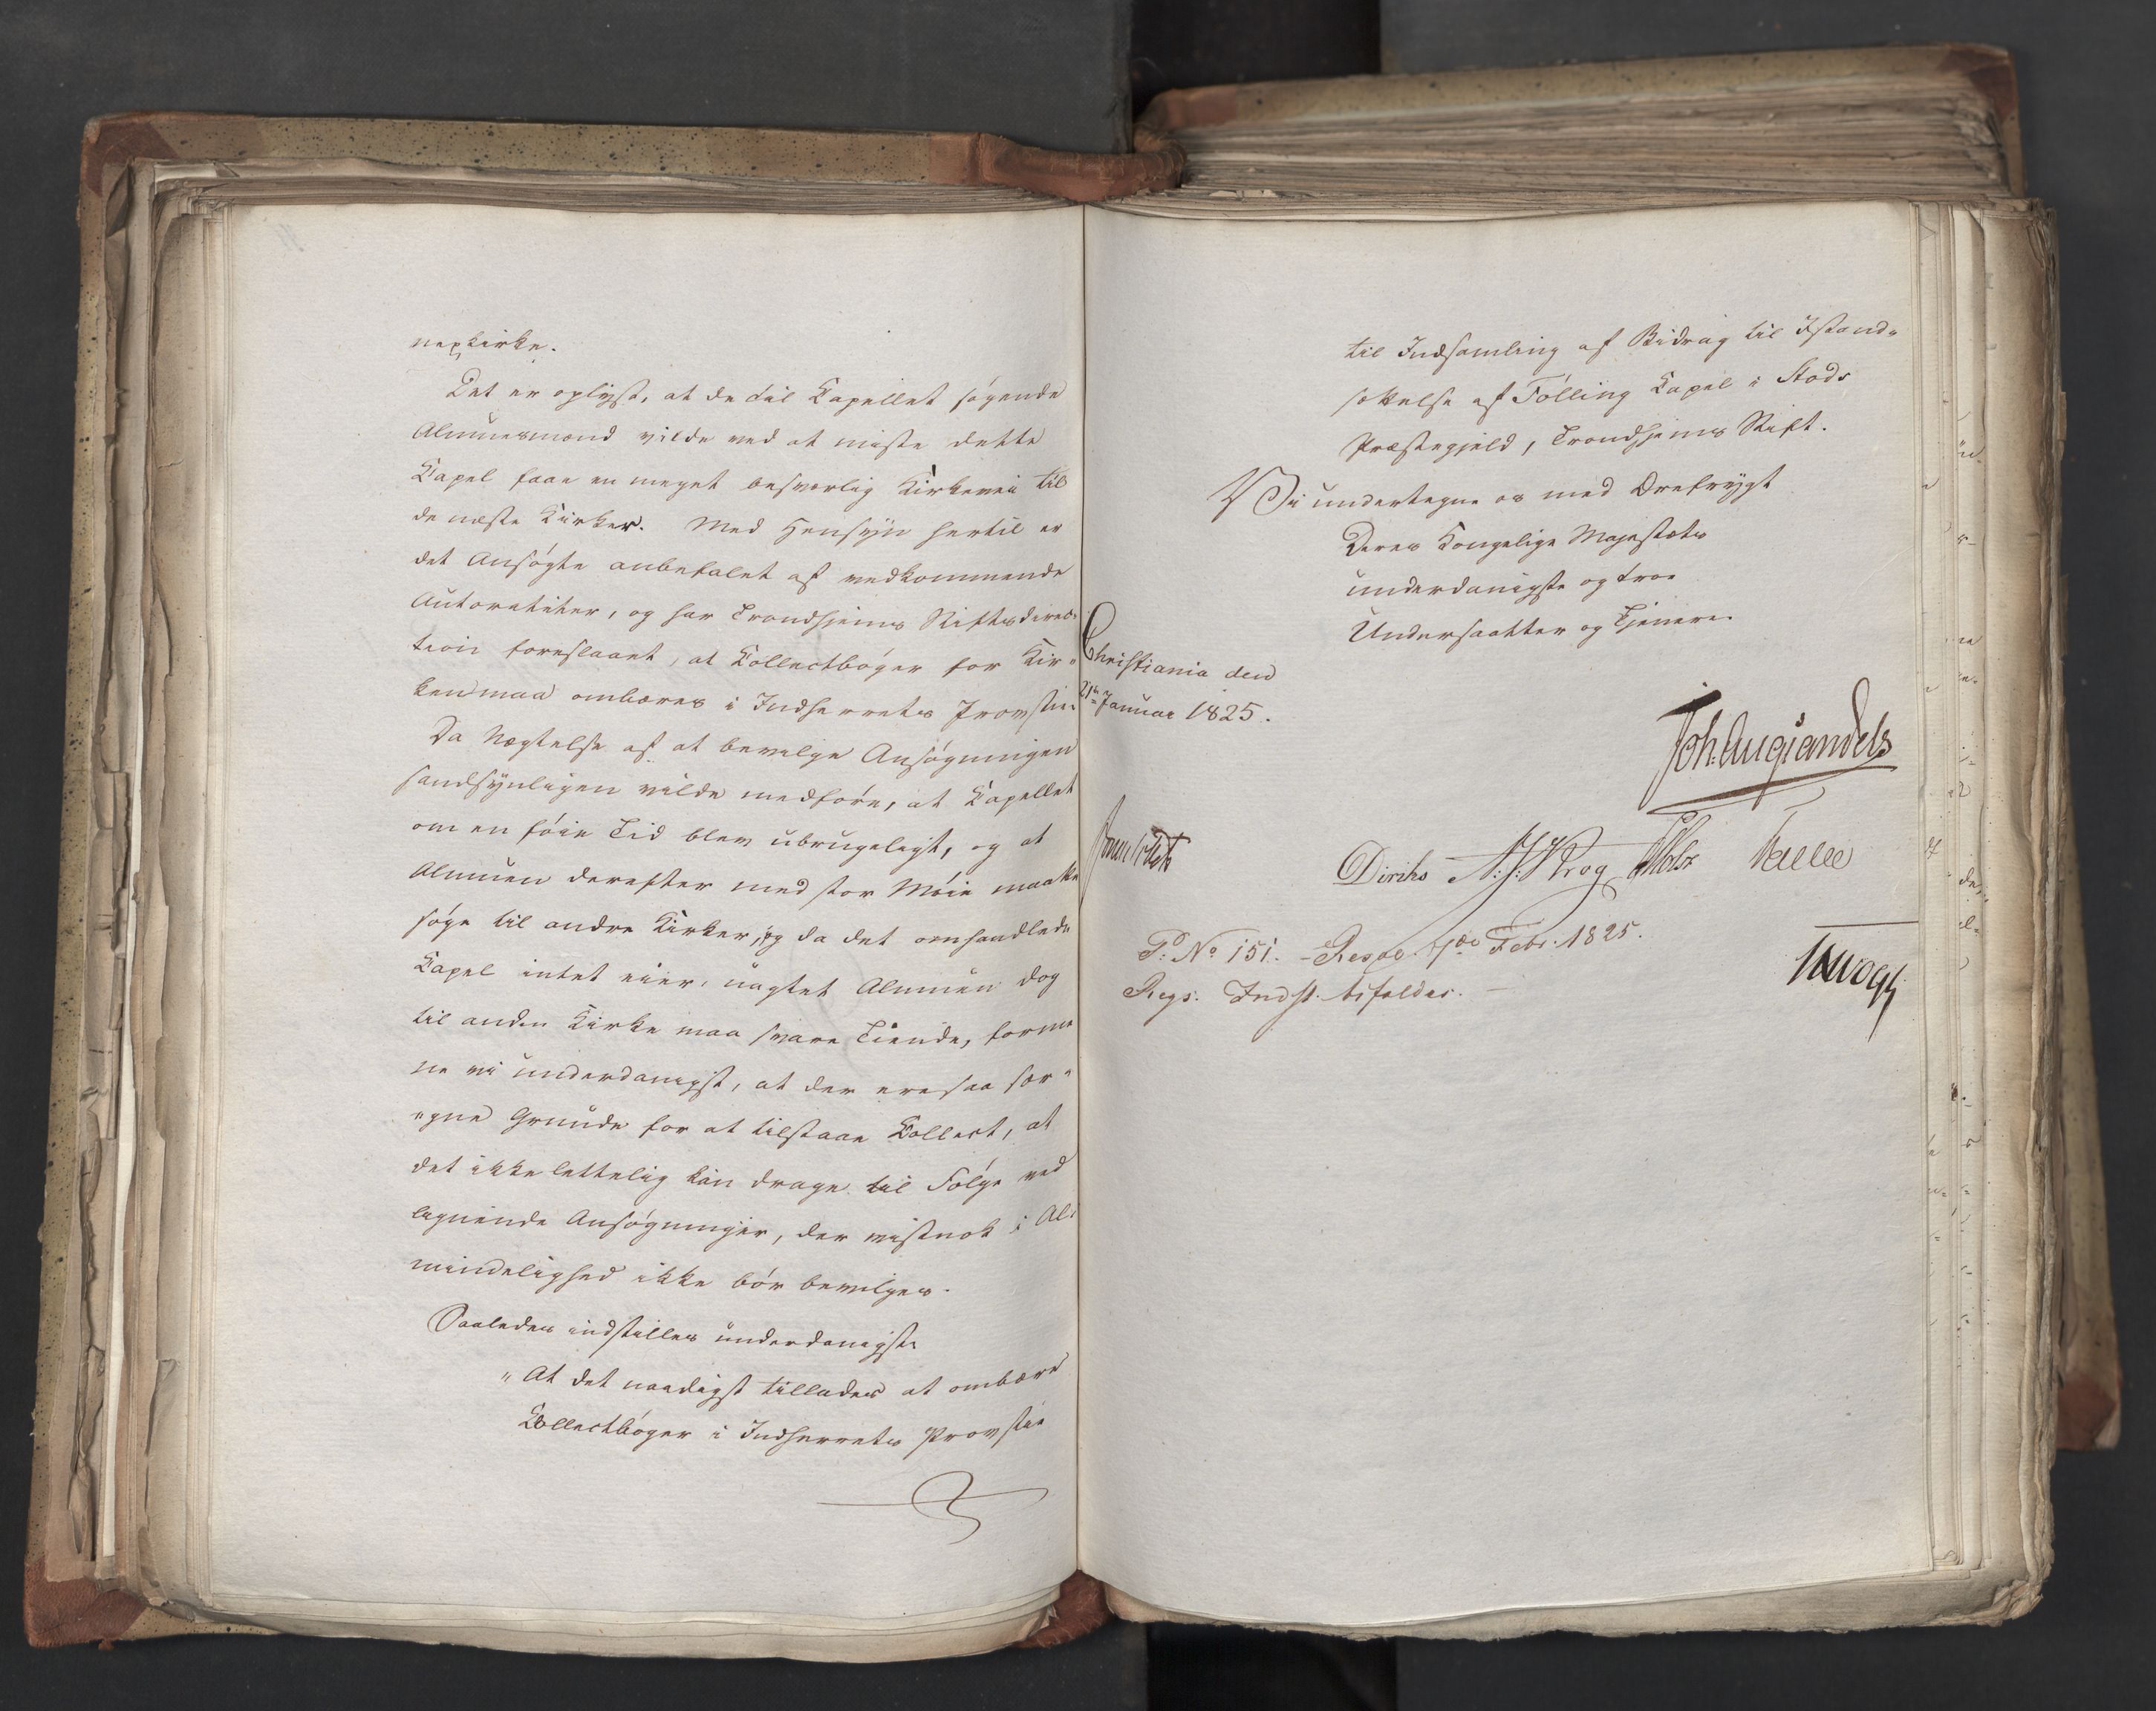 nexkirke.
Det er oplyst, at de til Capellet søgende
Almuesmænd vilde ved at miste dette
Capel faae en meget besværlig Kirkevei til
de næste Kirker. Med Hensyn hertil er
det Ansøgte anbefalet af vedkommende
Autoriteter, og har Trondhjems Stiftsdirec-
tion foreslaaet, at Collectbøger for Kir-
ken maa ombæres i Indherreds Provstie.
Da Nægtelse af at bevilge Ansøgningen
sandsynligen vilde medføre, at Capellet
om en føie Tid blev ubrugeligt, og at
Almuen derefter med stor Møie maatte
søge til andre Kirker, og da det omhandlede
Capel intet eier, uagtet Almuen dog
til anden Kirke maa svare Tiende, forme
ne vi underdanigst, at der ere saa sær-
egne Grunde for at tilstaae Collect, at
det ikke lettelig kan drages til Følge ved
lignende Ansøgninger, der vistnok i Al-
mindelighed ikke bør bevilges.
Saaledes indstilles underdanigst:
"At det naadigst tillades at ombære
Collectbøger i Indherreds Provstie
til Indsamling af Bidrag til Istand-
sættelse af Følling Capel i Stods
Præstegjeld, Trondhjems Stift.
Vi undertegne os med Ærefrygt
Deres Kongelige Majestæts
underdanigste og troe
Undersaatter og Tjenere.
Christiania den
21de Januar 1825.
Joh. Aug. Sandels
Diriks N. J. Krog Holst Treschow
P: No 151. - Resol. 7de Febr. 1825.
Regs. Indst. bifaldes. -